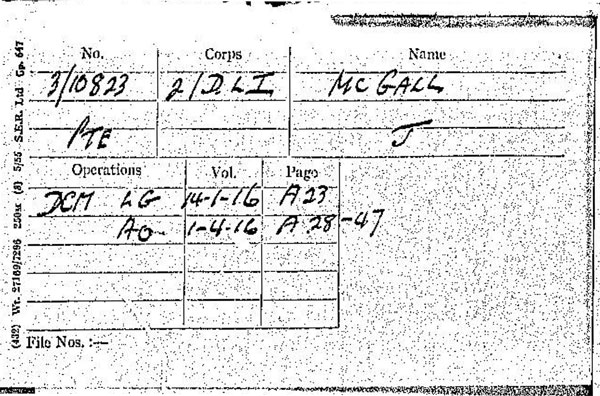 No. Corps Name
3/10823 2/D.L.I MC GALL
PTE J
Operations Vol. Page
DCM LG 14-1-16 A 23
AO 1-4-16 A 28-47
File Nos. :—
(432) Wt. 27169/7296 250M (8) 5/55 S.E.R. Ltd. Gp. 647